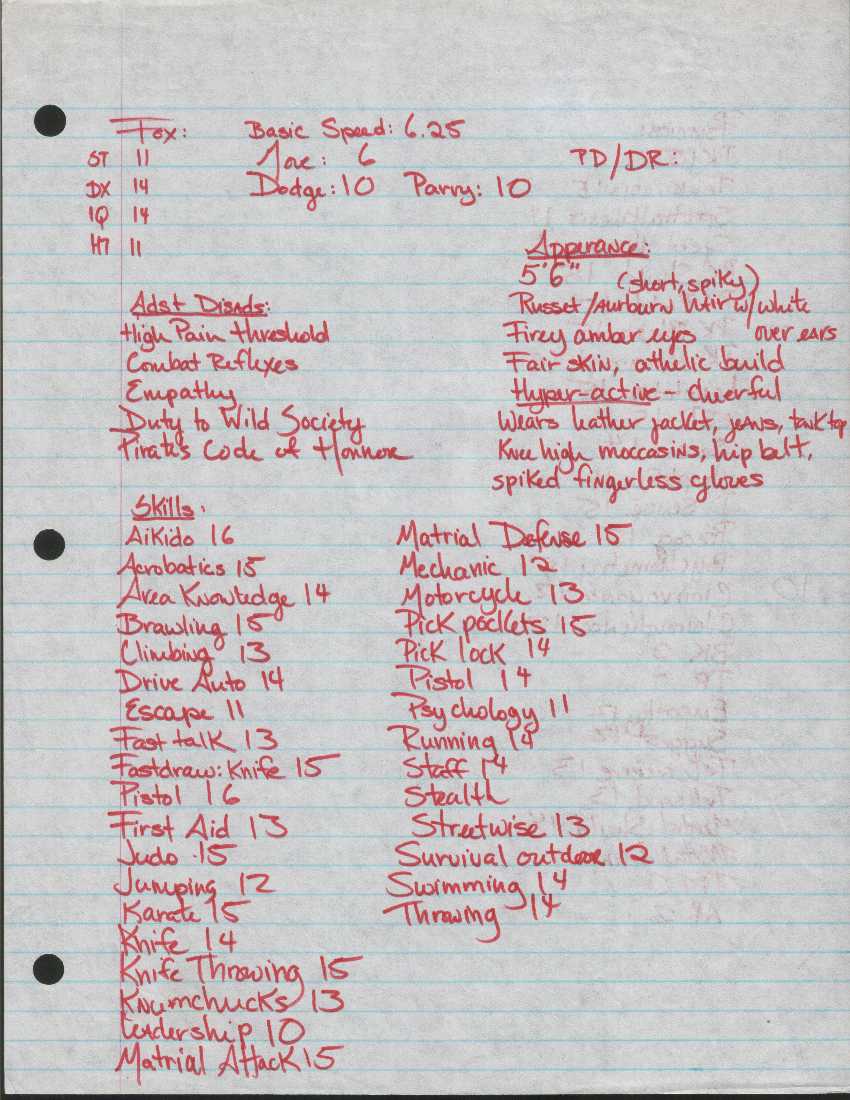 Fox: Basic Speed: 6.25
ST 11 Move: 6 PD/DR:
DX 14 Dodge: 10 Parry: 10
IQ 14
HT 11
Apperance:
5'6" (short, spiky)
Russet/Aurburn hair w/ white over ears
Firey amber eyes
Fair skin, athelic build
Hyper-active - cheerful
Wears leather jacket, jeans, tank top
Knee high moccasins, hip belt,
spiked fingerless gloves
Ads + Disads:
High Pain threshold
Combat Reflexes
Empathy
Duty to Wild Society
Pirate's Code of Honnore
Skills:
Aikido 16
Acrobatics 15
Area Knowledge 14
Brawling 15
Climbing 13
Drive Auto 14
Escape 11
Fast talk 13
Fastdraw: Knife 15
Pistol 16
First Aid 13
Judo 15
Jumping 12
Karate 15
Knife 14
Knife Throwing 15
Knumchucks 13
Leadership 10
Matrial Attack 15
Matrial Defense 15
Mechanic 12
Motorcycle 13
Pick pockets 15
Pick lock 14
Pistol 14
Psychology 11
Running 14
Staff 14
Stealth
Streetwise 13
Survival outdoor 12
Swimming 14
Throwing 14